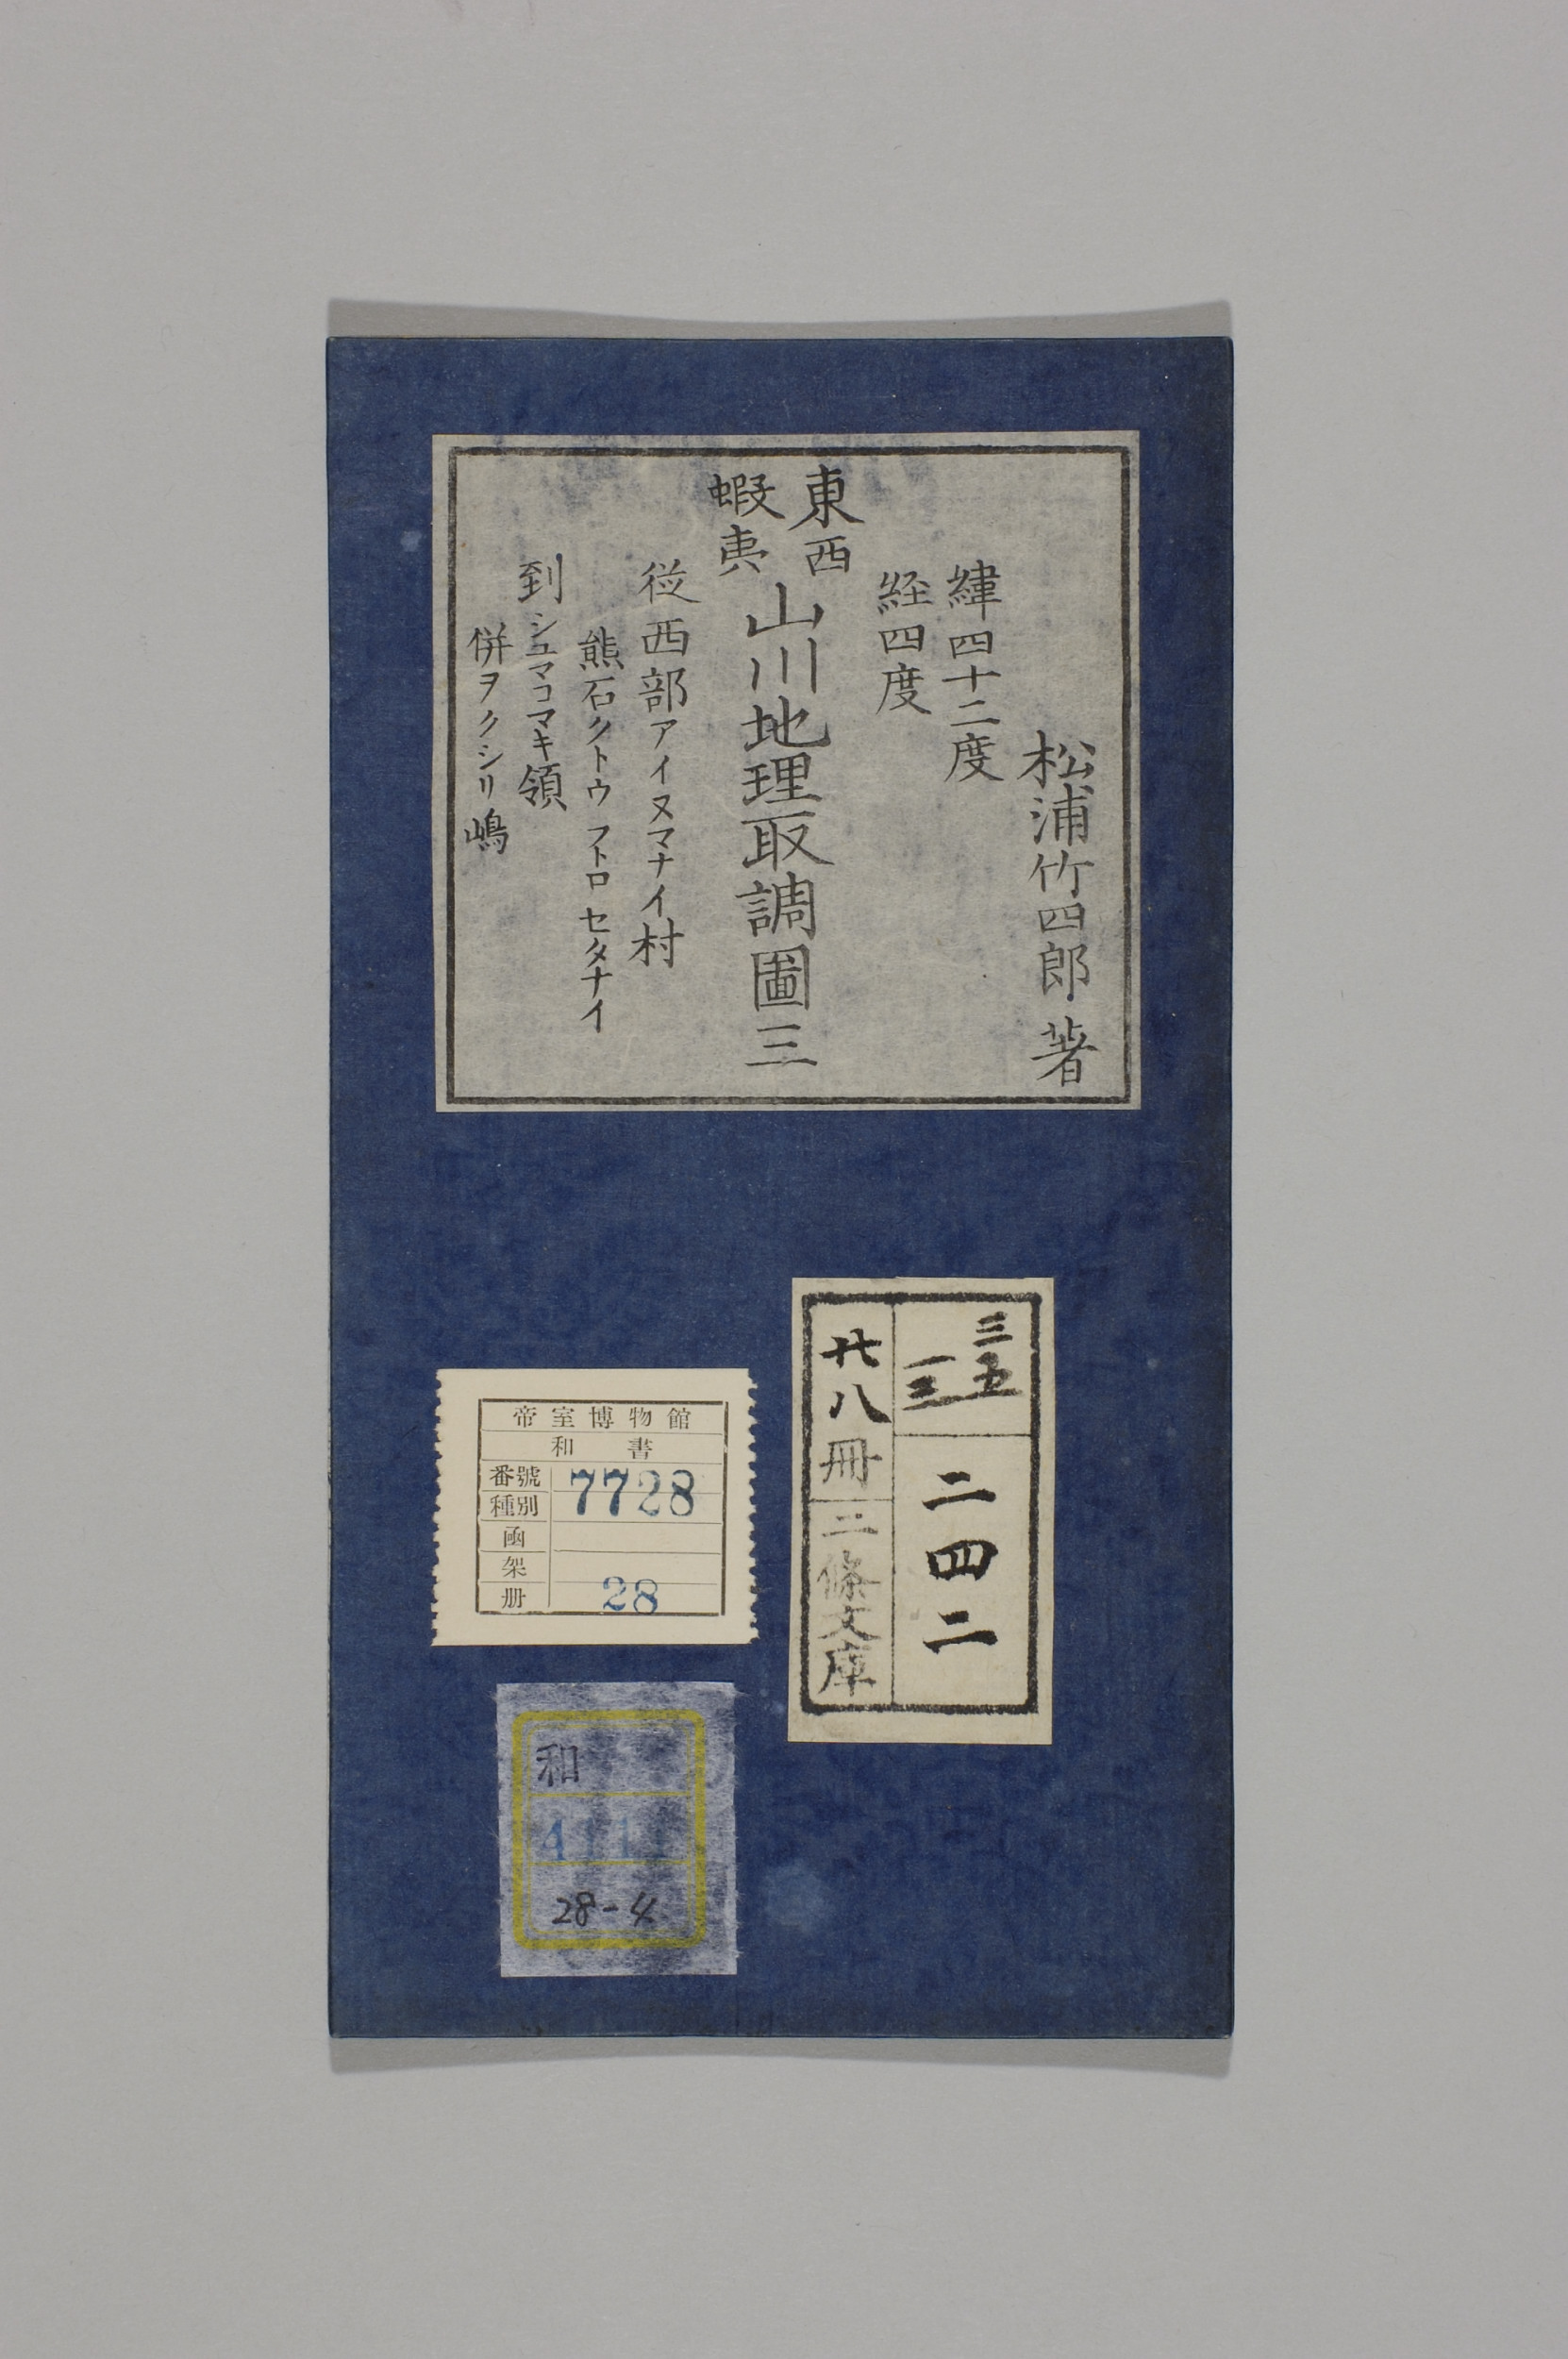 松浦竹四郎著
緯四十二度
経四度
東西
蝦夷
山川地理取調圖三
従西部アイヌマナイ村
熊石クトウ フトロ セタナイ
到シユマコマキ領
併ヲクシリ嶋
三五
一三
二四二
廿八冊
二條文庫
帝室博物館
和書
番號 7728
種別
函
架
册 28
和
4111
28-4